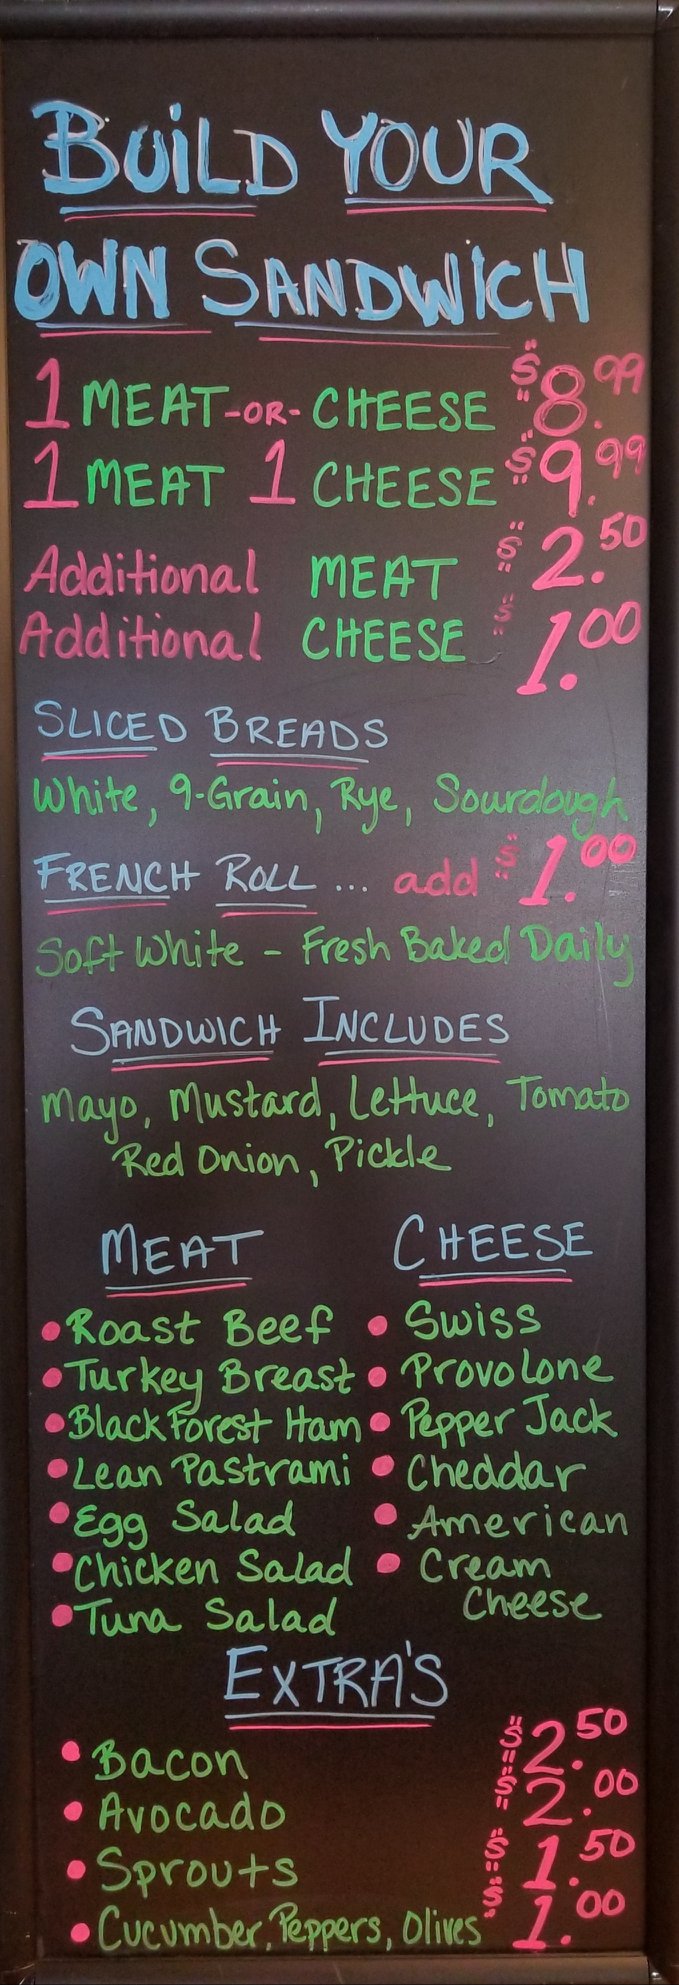 BUiLD YOUR
OWN SANDWiCH
1 MEAT -OR- CHEESE $8.99
1 MEAT 1 CHEESE $9.99
Additional MEAT $2.50
Additional CHEESE $1.00
SLICED BREADS
White, 9-Grain, Rye, Sourdough
FRENCH ROLL ... add $1.00
Soft White - Fresh Baked Daily
SANDWICH INCLUDES
Mayo, Mustard, Lettuce, Tomato
Red Onion, Pickle
MEAT CHEESE
• Roast Beef • Swiss
• Turkey Breast • Provolone
• Black Forest Ham • Pepper Jack
• Lean Pastrami • Cheddar
• Egg Salad • American
• Chicken Salad • Cream
• Tuna Salad Cheese
EXTRA'S
• Bacon $2.50
• Avocado $2.00
• Sprouts $1.50
• Cucumber, Peppers, Olives $1.00